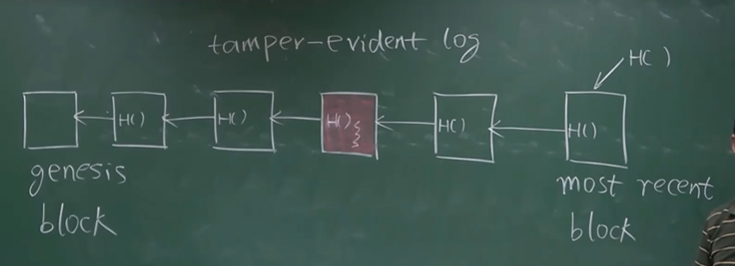 tamper-evident log
H()
H()
H()
H()
H()
H()
genesis
block
most recent
block